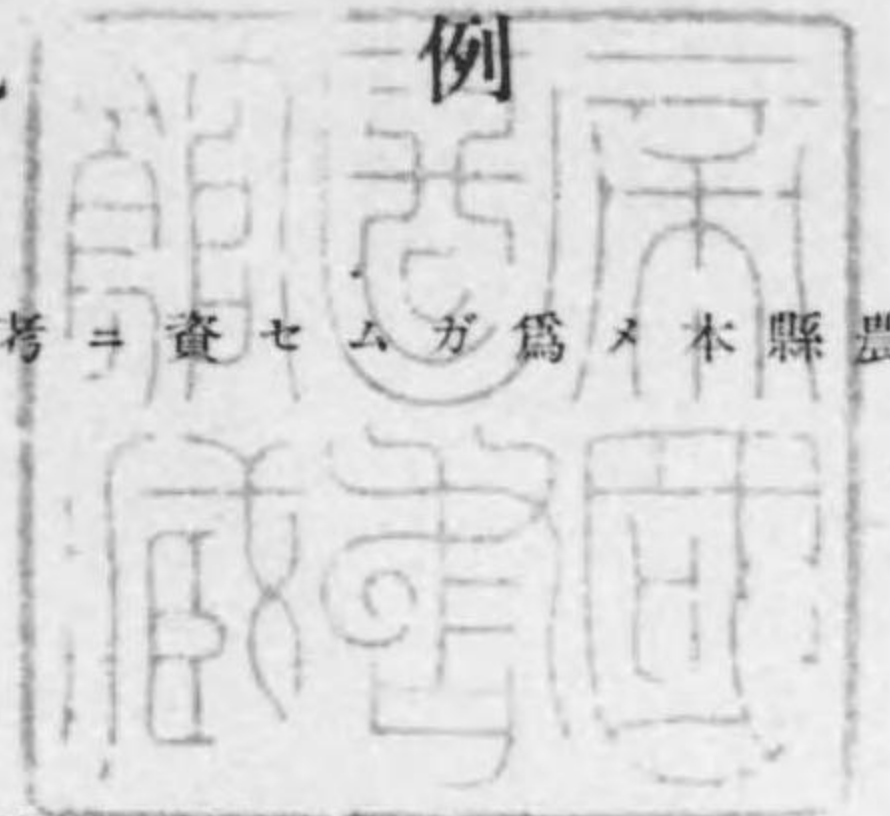 例
考ニ資セムガ爲メ本縣農
帝國
圖書
館藏